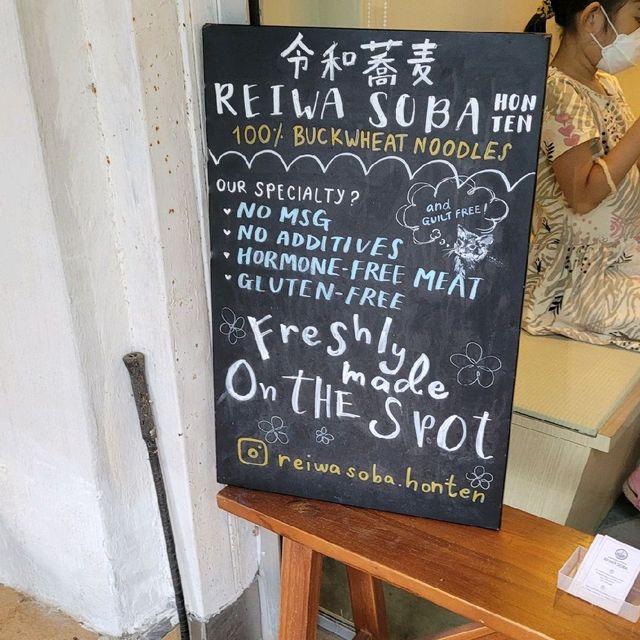 令和蕎麦
REIWA SOBA HON TEN
100% BUCKWHEAT NOODLES
OUR SPECIALTY?
and
GUILT FREE!
NO MSG
NO ADDITIVES
HORMONE-FREE MEAT
GLUTEN-FREE
Freshly
made
On THE SPOT
reiwasoba.honten
REIWA SOBA